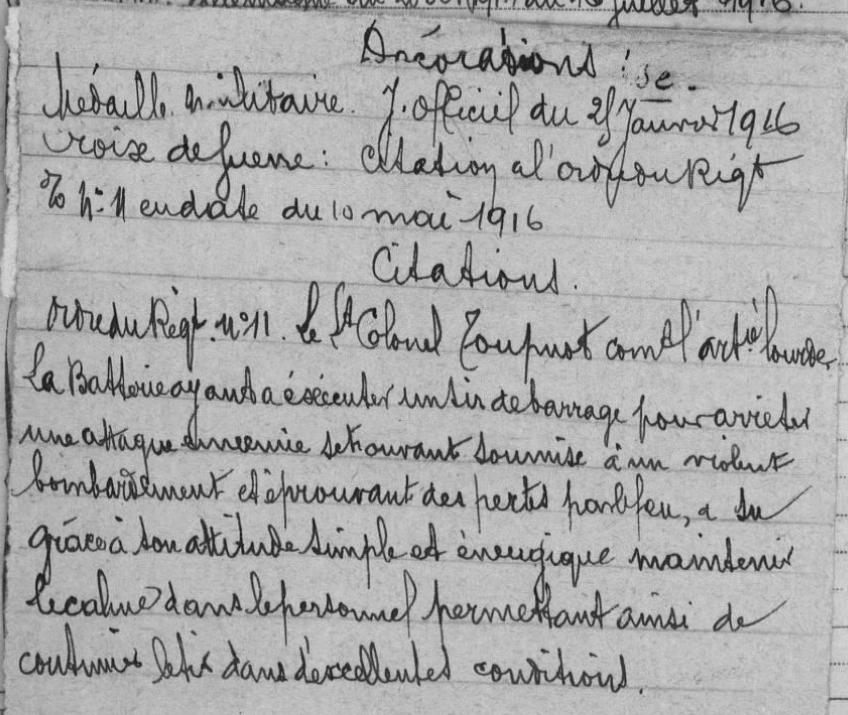 du 10 juillet 1916.
Décorations : se.
Médaille militaire. J. Officiel du 25 Janvier 1916
Croix de Guerre : Citation a l'ordre du Régt
% N° 11 en date du 10 mai 1916
Citations.
Ordre du Régt. N° 11. Le Lt Colonel Toupnot comdt l'artie lourde
La Batterie ayant a éxécuter un tir de barrage pour arrêter
une attaque ennemie se trouvant soumise à un violent
bombardement et éprouvant des pertes par le feu, a su
grâce à son attitude simple et énergique maintenir
le calme dans le personnel permettant ainsi de
continuer le tir dans d'excellentes conditions.